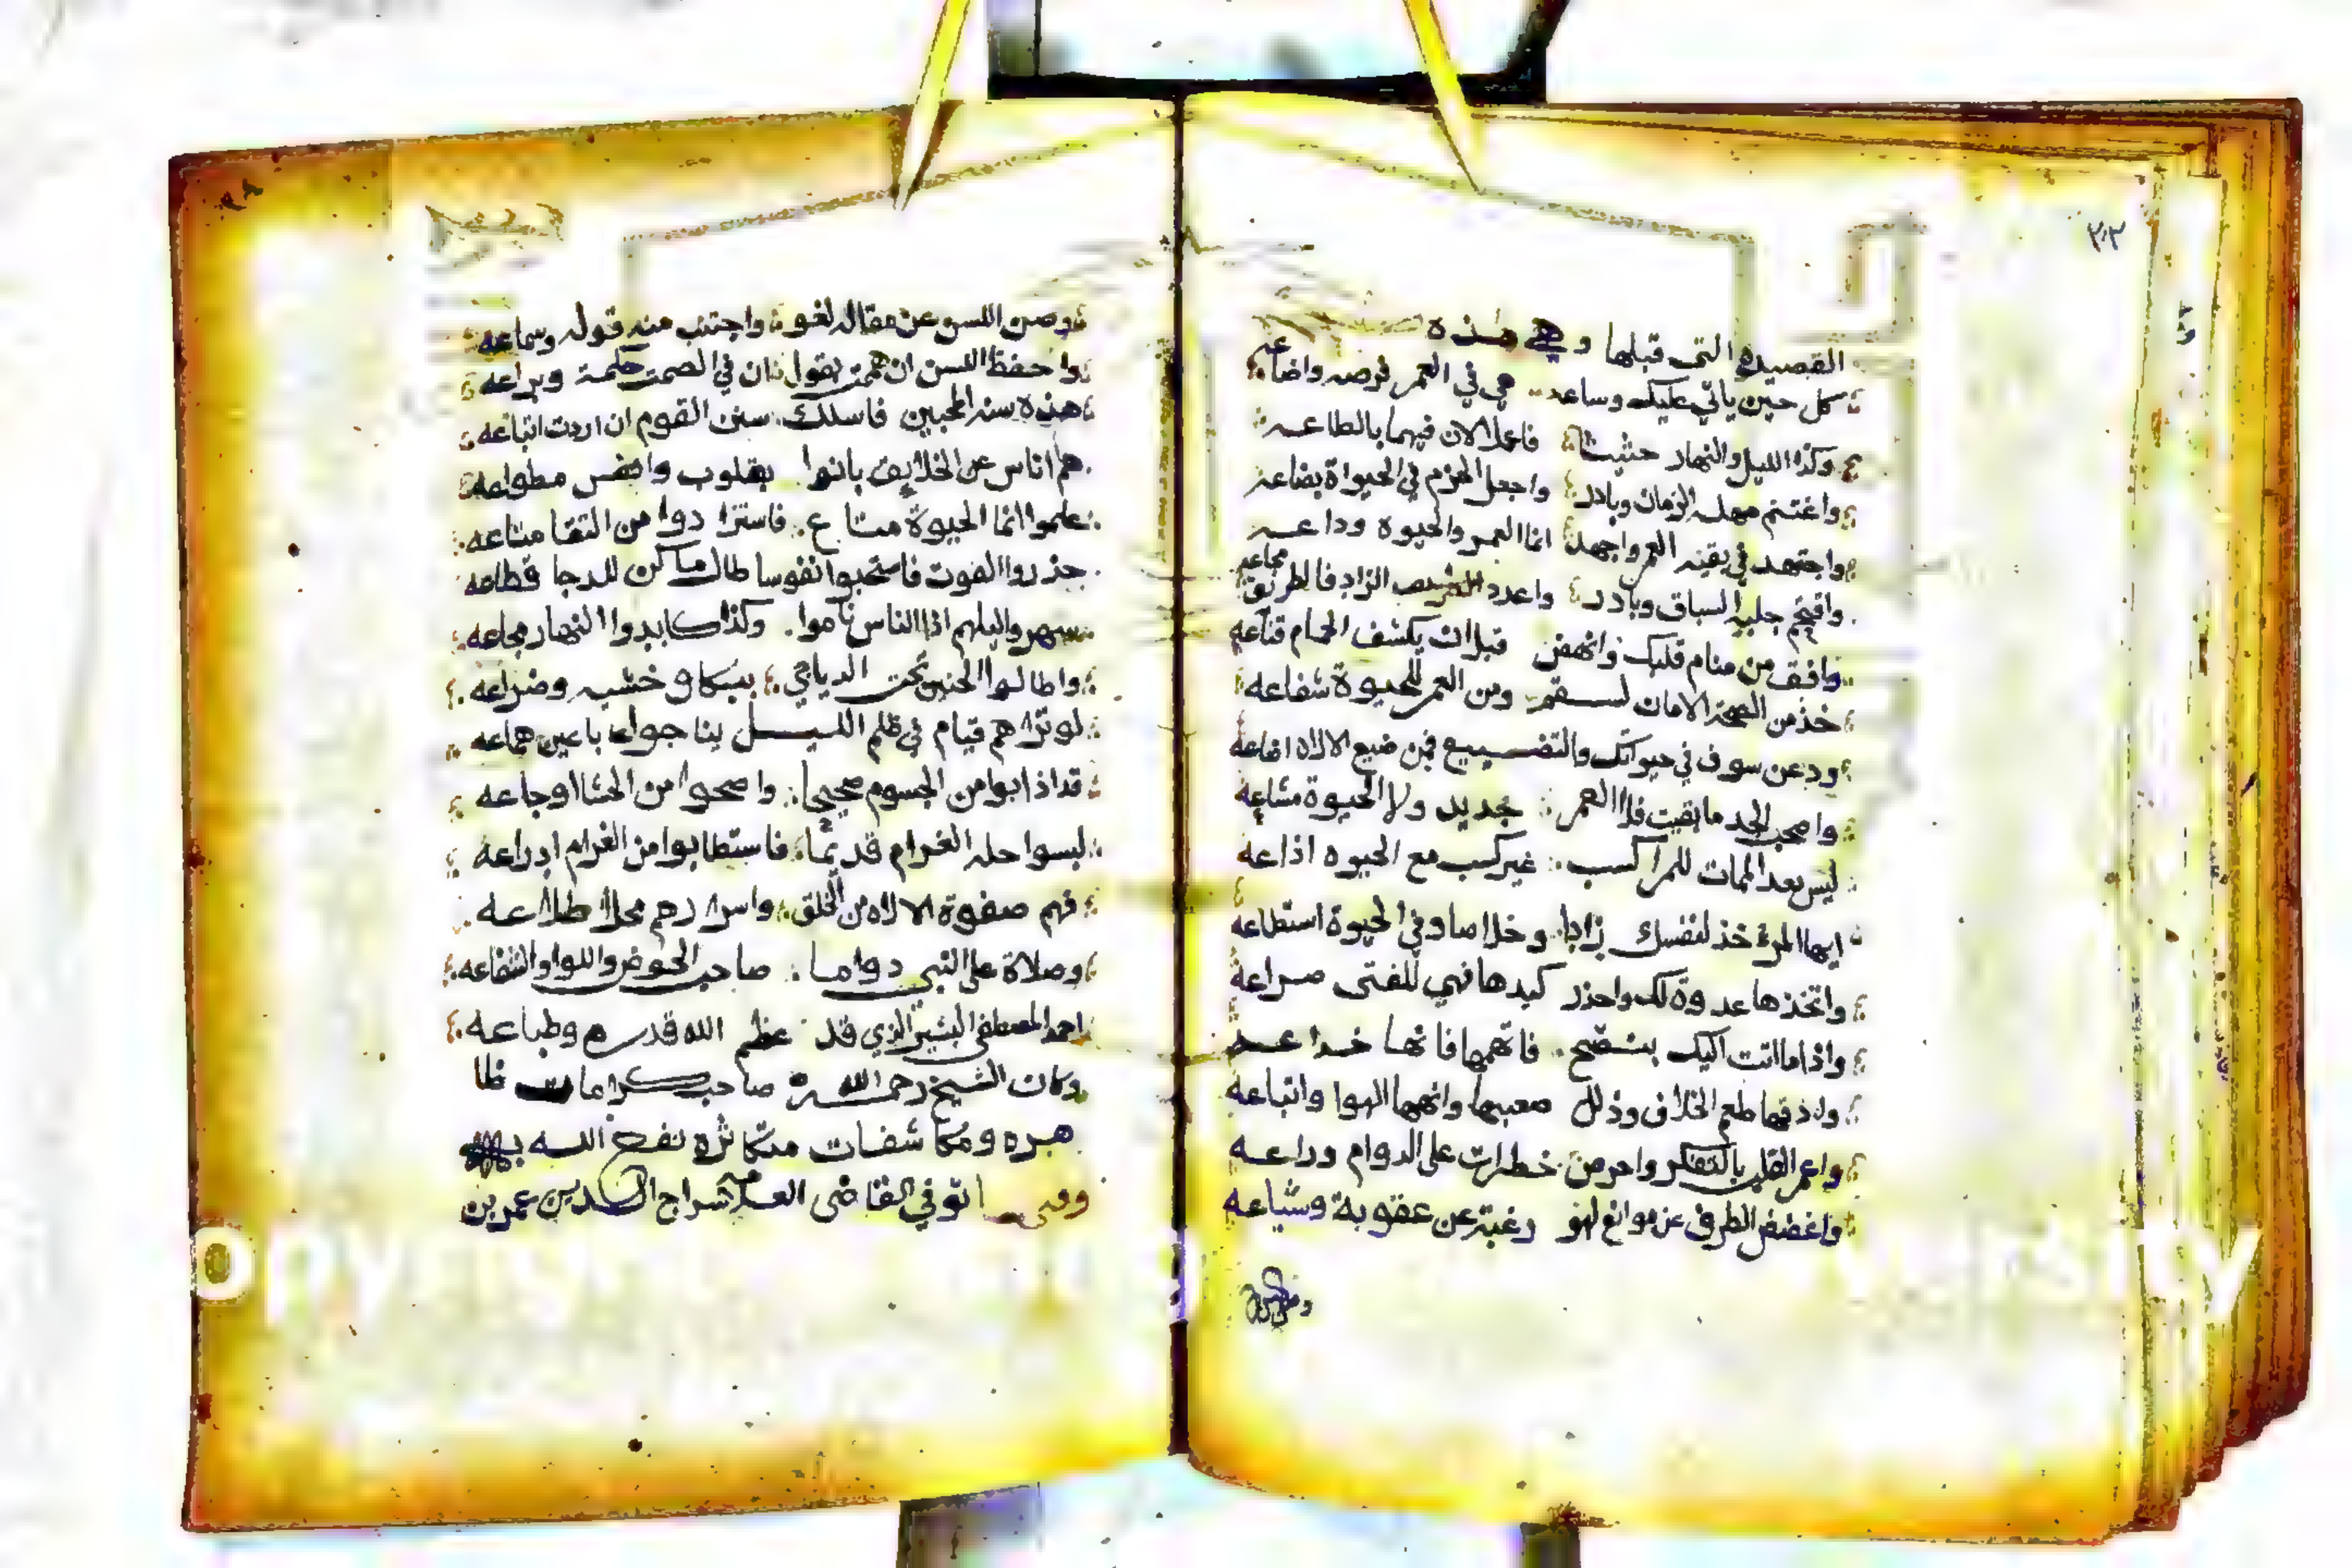 ٢٠٣
القصيده التى قبلها وهي هذه
كل حين ياتي عليك وساعه هي في العمر فرصه واضاعه
وكذا الليل والنهار حثيثا فاعملا الان فيهما بالطاعه
واغتنم مهله الزمان وبادر واجعل الحزم في الحيواة بضاعه
واجتهد في بقيه العمر واجهد انما العمر والحيوه وداعه
واقتحم جلبه السباق وبادر واعدد الزاد فالطريق مجاعه
وافق من منام قلبك وانهض قبل ان يكشف الحمام قناعه
خذ من الصحة الامان لسقم ومن العمر للحيوة شفاعه
ودعن سوف في حيواتك والتضييع فمن ضيع الالاه اضاعه
واصحب الجد ما بقيت فلا العمر جديد ولا الحيوة مشاعه
ليس بعد الممات للمرا كسب غير كسب مع الحيوه اذاعه
ايها المرء خذ لنفسك زادا وخلاصا وفي الحيوة استطاعه
واتخذها عدوة لك واحذر كيدها فهي للفتى صراعه
واذا ما اتت اليك بنصح فاتهمها فانها خداعه
ولذقها طعم الخلاف وذلل صعبها وانهها الهوا واتباعه
واعمر القلب بالتفكر واحرمن خطرات على الدوام وراعه
واغضض الطرف عن مواقع لهو رغبة عن عقوبة وشياعه
وصن اللسن عن مقاله لغو واجتنب منه قوله وسماعه
واحفظ اللسن ان هممت بقول ان في الصمت حكمة وبراعه
هذه سنه المحبين فاسلك سنن القوم ان اردت اتباعه
هم اناس عن الخلايق بانوا بقلوب وانفس مطواعه
علموا انما الحيوة متاع فاستزادوا من التقا متاعه
حذروا الفوت فاستحبوا نفوسا طال ما كن للدجا قطاعه
سهروا ليلهم اذا الناس ناموا وكذا كابدوا النهار مجاعه
واطالوا الحنين تحت الدياجي ببكا وخشيه وضراعه
لو تراهم قيام في ظلم الليل بناجوا باعين هماعه
قد اذابوا من الجسوم صحيحا واصحوا من الحشا اوجاعه
لبسوا حله الغرام قديما فاستطابوا من الغرام ادراعه
فهم صفوة الالاه من الخلق واسرارهم محلا طلاعه
وصلاة على النبي دواما صاحب الحوض واللوا والشفاعه
احمد المصطفى البشير الذي قد عظم الله قدره وطباعه
وكان الشيخ رحمه الله صاحب كرامات ظا
هره ومكاشفات متكاثره نفع الله به
وفى توفي القاضى العلامه سراج الدين عمر بن